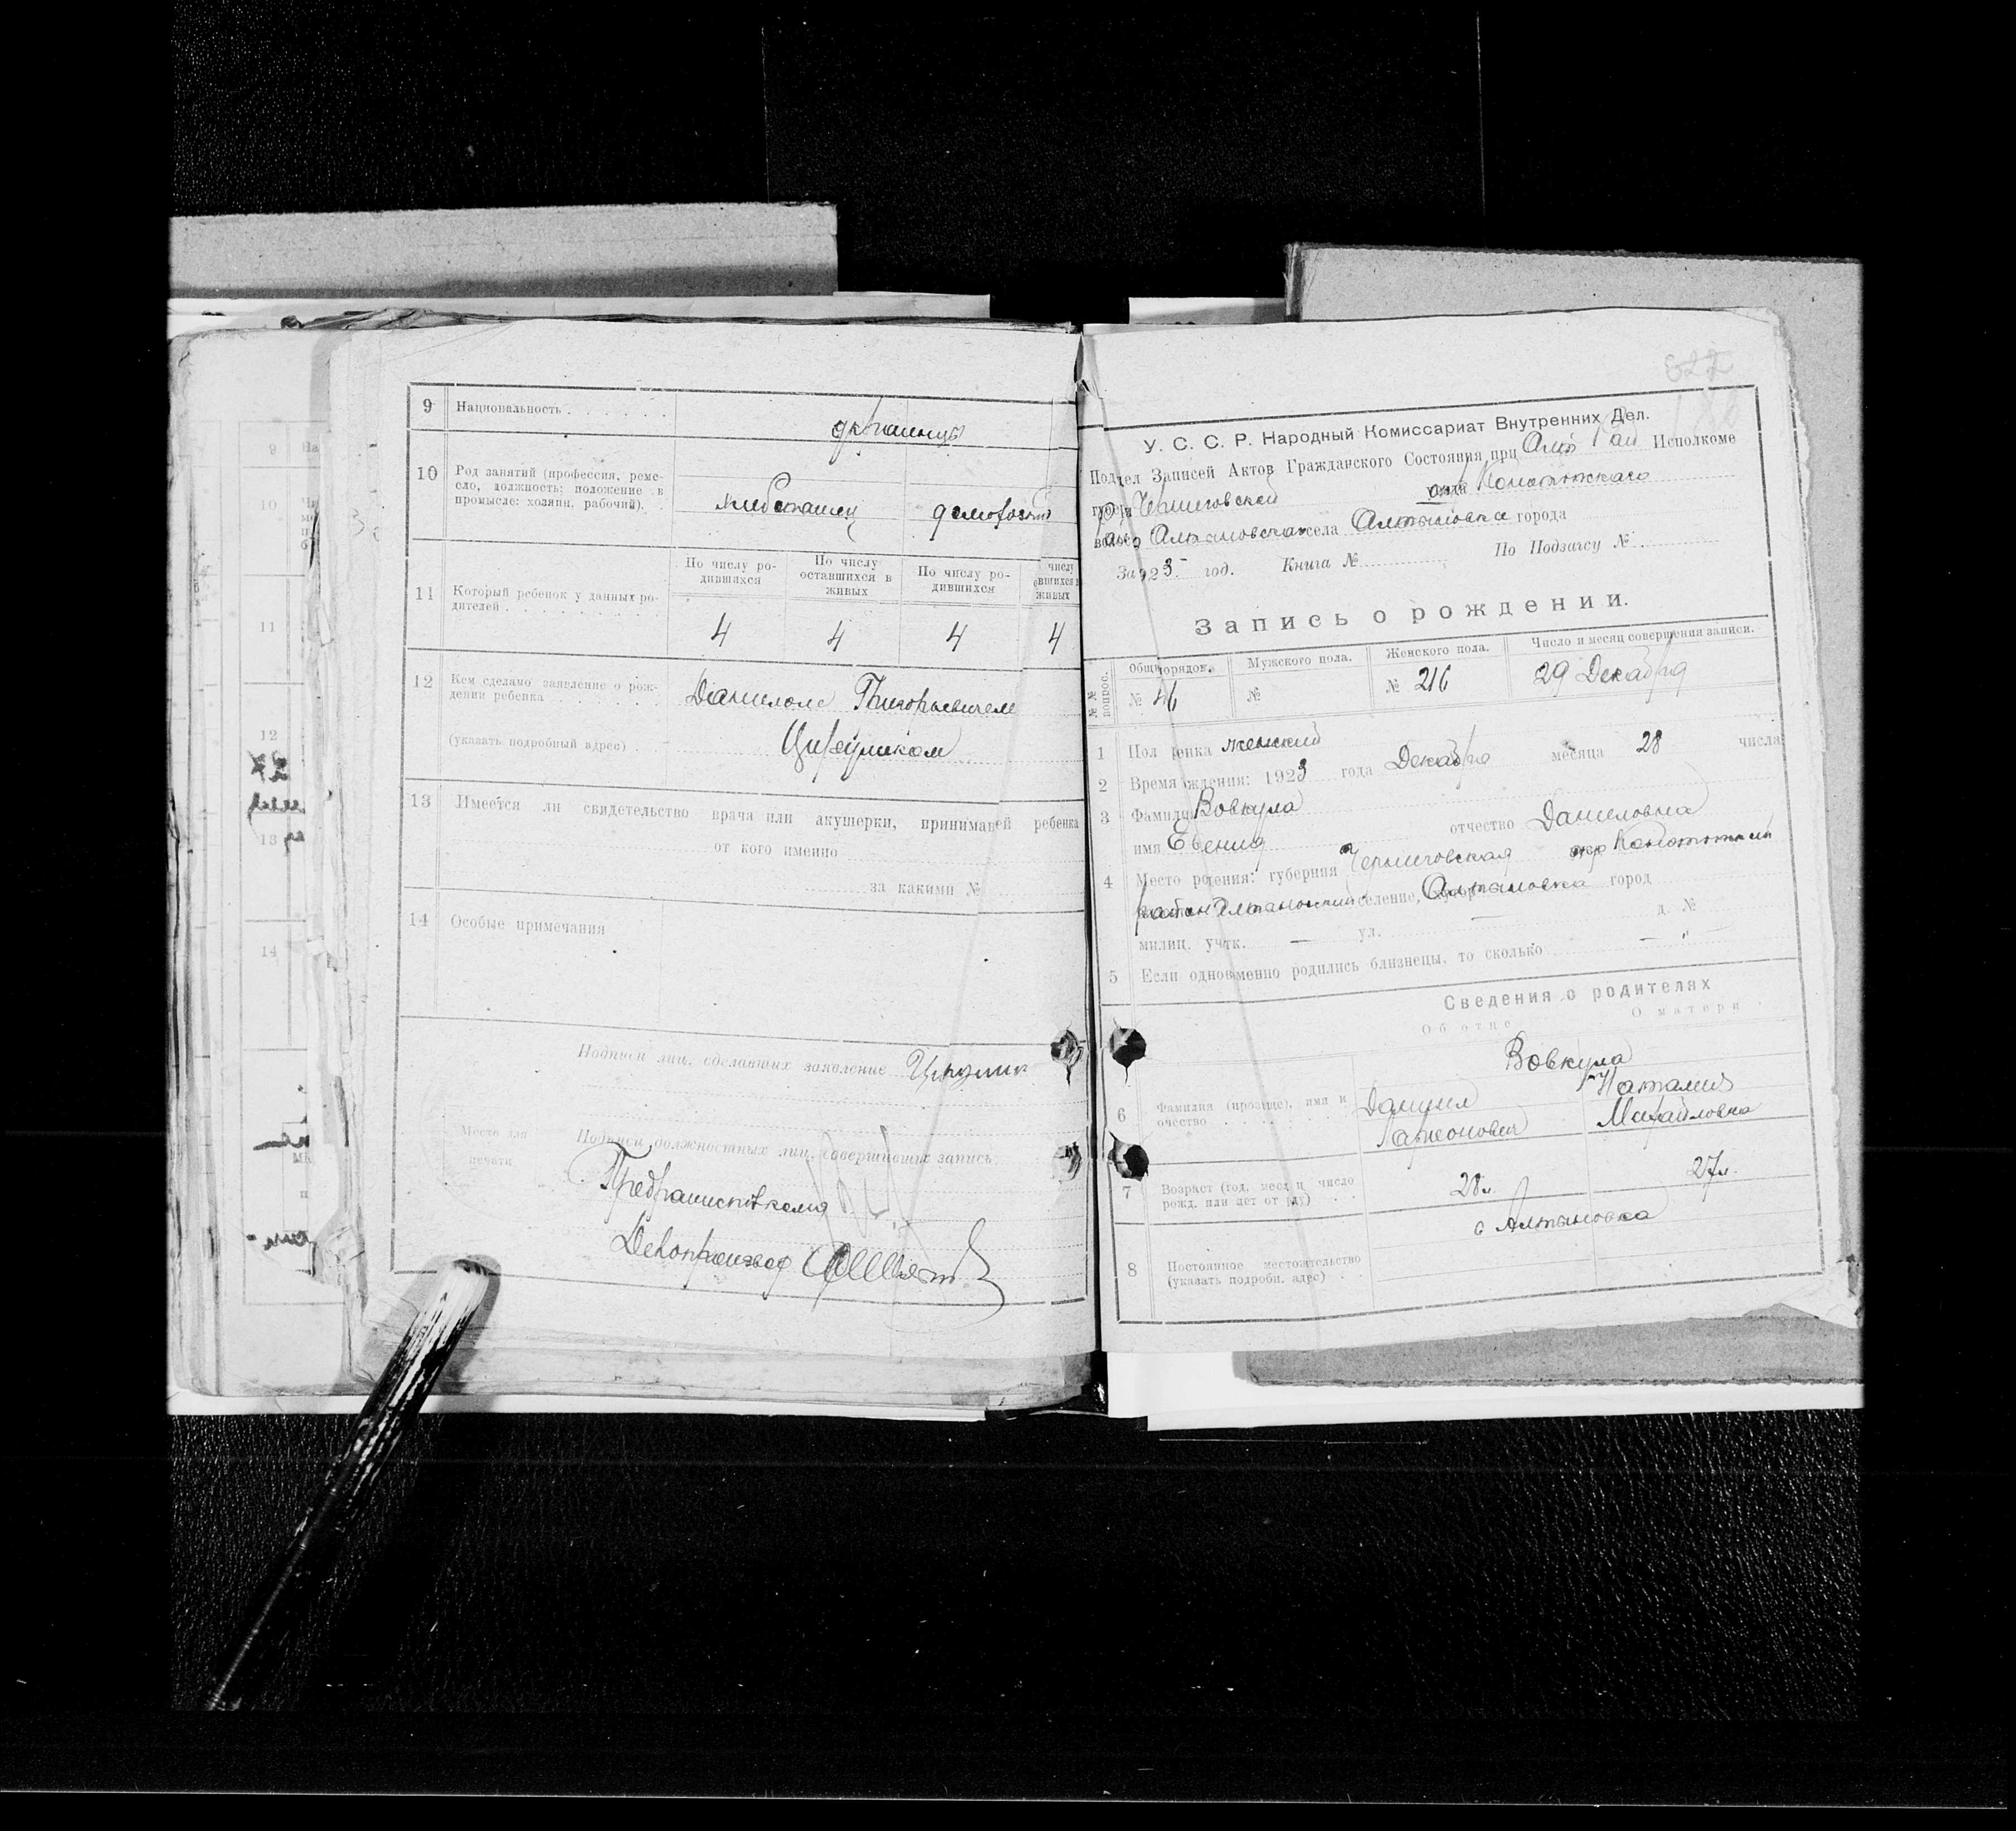 9 Национальность
украинцы
10 Род занятий (профессия, реме-
сло, должность; положение в
промысле: хозяин, рабочий).
хлебопашец
11 Который ребенок у данных ро-
дителей
По числу ро-
дившихся
По числу
оставшихся в
живых
По числу ро-
дившихся
числу
вшихся в
живых
4 4 4 4
12 Кем сделано заявление о рож-
дении ребенка
Данилом Григорьевичем
(указать подробный адрес)
Цируликом
13 Имеется ли свидетельство врача или акушерки, принимавшей ребенка
от кого именно
за каким №
14 Особые примечания
Подписи лиц, сделавших заявление Цирулик
Подписи должностных лиц, совершивших запись
Место для
печати
Предрайисполкома
Делопроизвод
9
10
11
12
13
14
822
У. С. С. Р. Народный Комиссариат Внутренних Дел.
Подтел Записей Актов Гражданского Состояния при Алт Рай Исполкоме
губерн Черниговской окр Конотопскаго
Алтыновская села Алтыновка города
За 1923 год. Книга № По Подзагсу №
Запись о рождении.
№ № вопрос.
Общ порядок.
Мужского пола.
Женского пола.
Число и месяц совершения записи.
№ 46
№
№ 216
29 Декабря
1 Пол енка женский
2 Время ждения: 1923 года Декабря месяца 28 числа
3 Фамили Вовкула
имя Евгения отчество Даниловна
4 Место рождения: губерния Черниговская окр Конотопский
район Алтыновский селение, Алтыновка город
милиц. учтк. — ул. — д. №
5 Если одновменно родились близнецы, то сколько — " —
Сведения о родителях
Об отце
О матери
Вовкула
6 Фамилия (прозвище), имя и
очество
Дануил
Ларионович
Наталия
Михайловна
7 Возраст (год, месяц и число
рожд. или лет от роду)
28 л.
27 л.
с Алтыновка
8 Постоянное местожительство
(указать подробн. адрес)